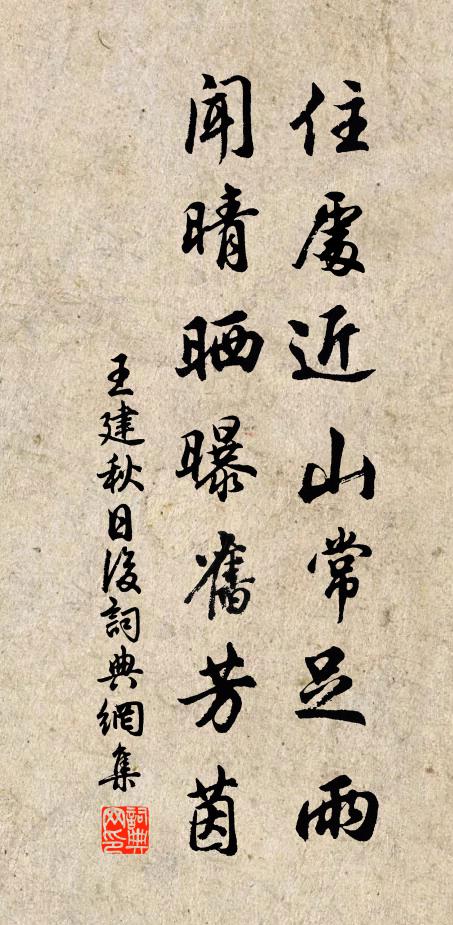 住處近山常足雨
聞晴晒曝舊芳茵
王建秋日後詞典網集
詞典网印